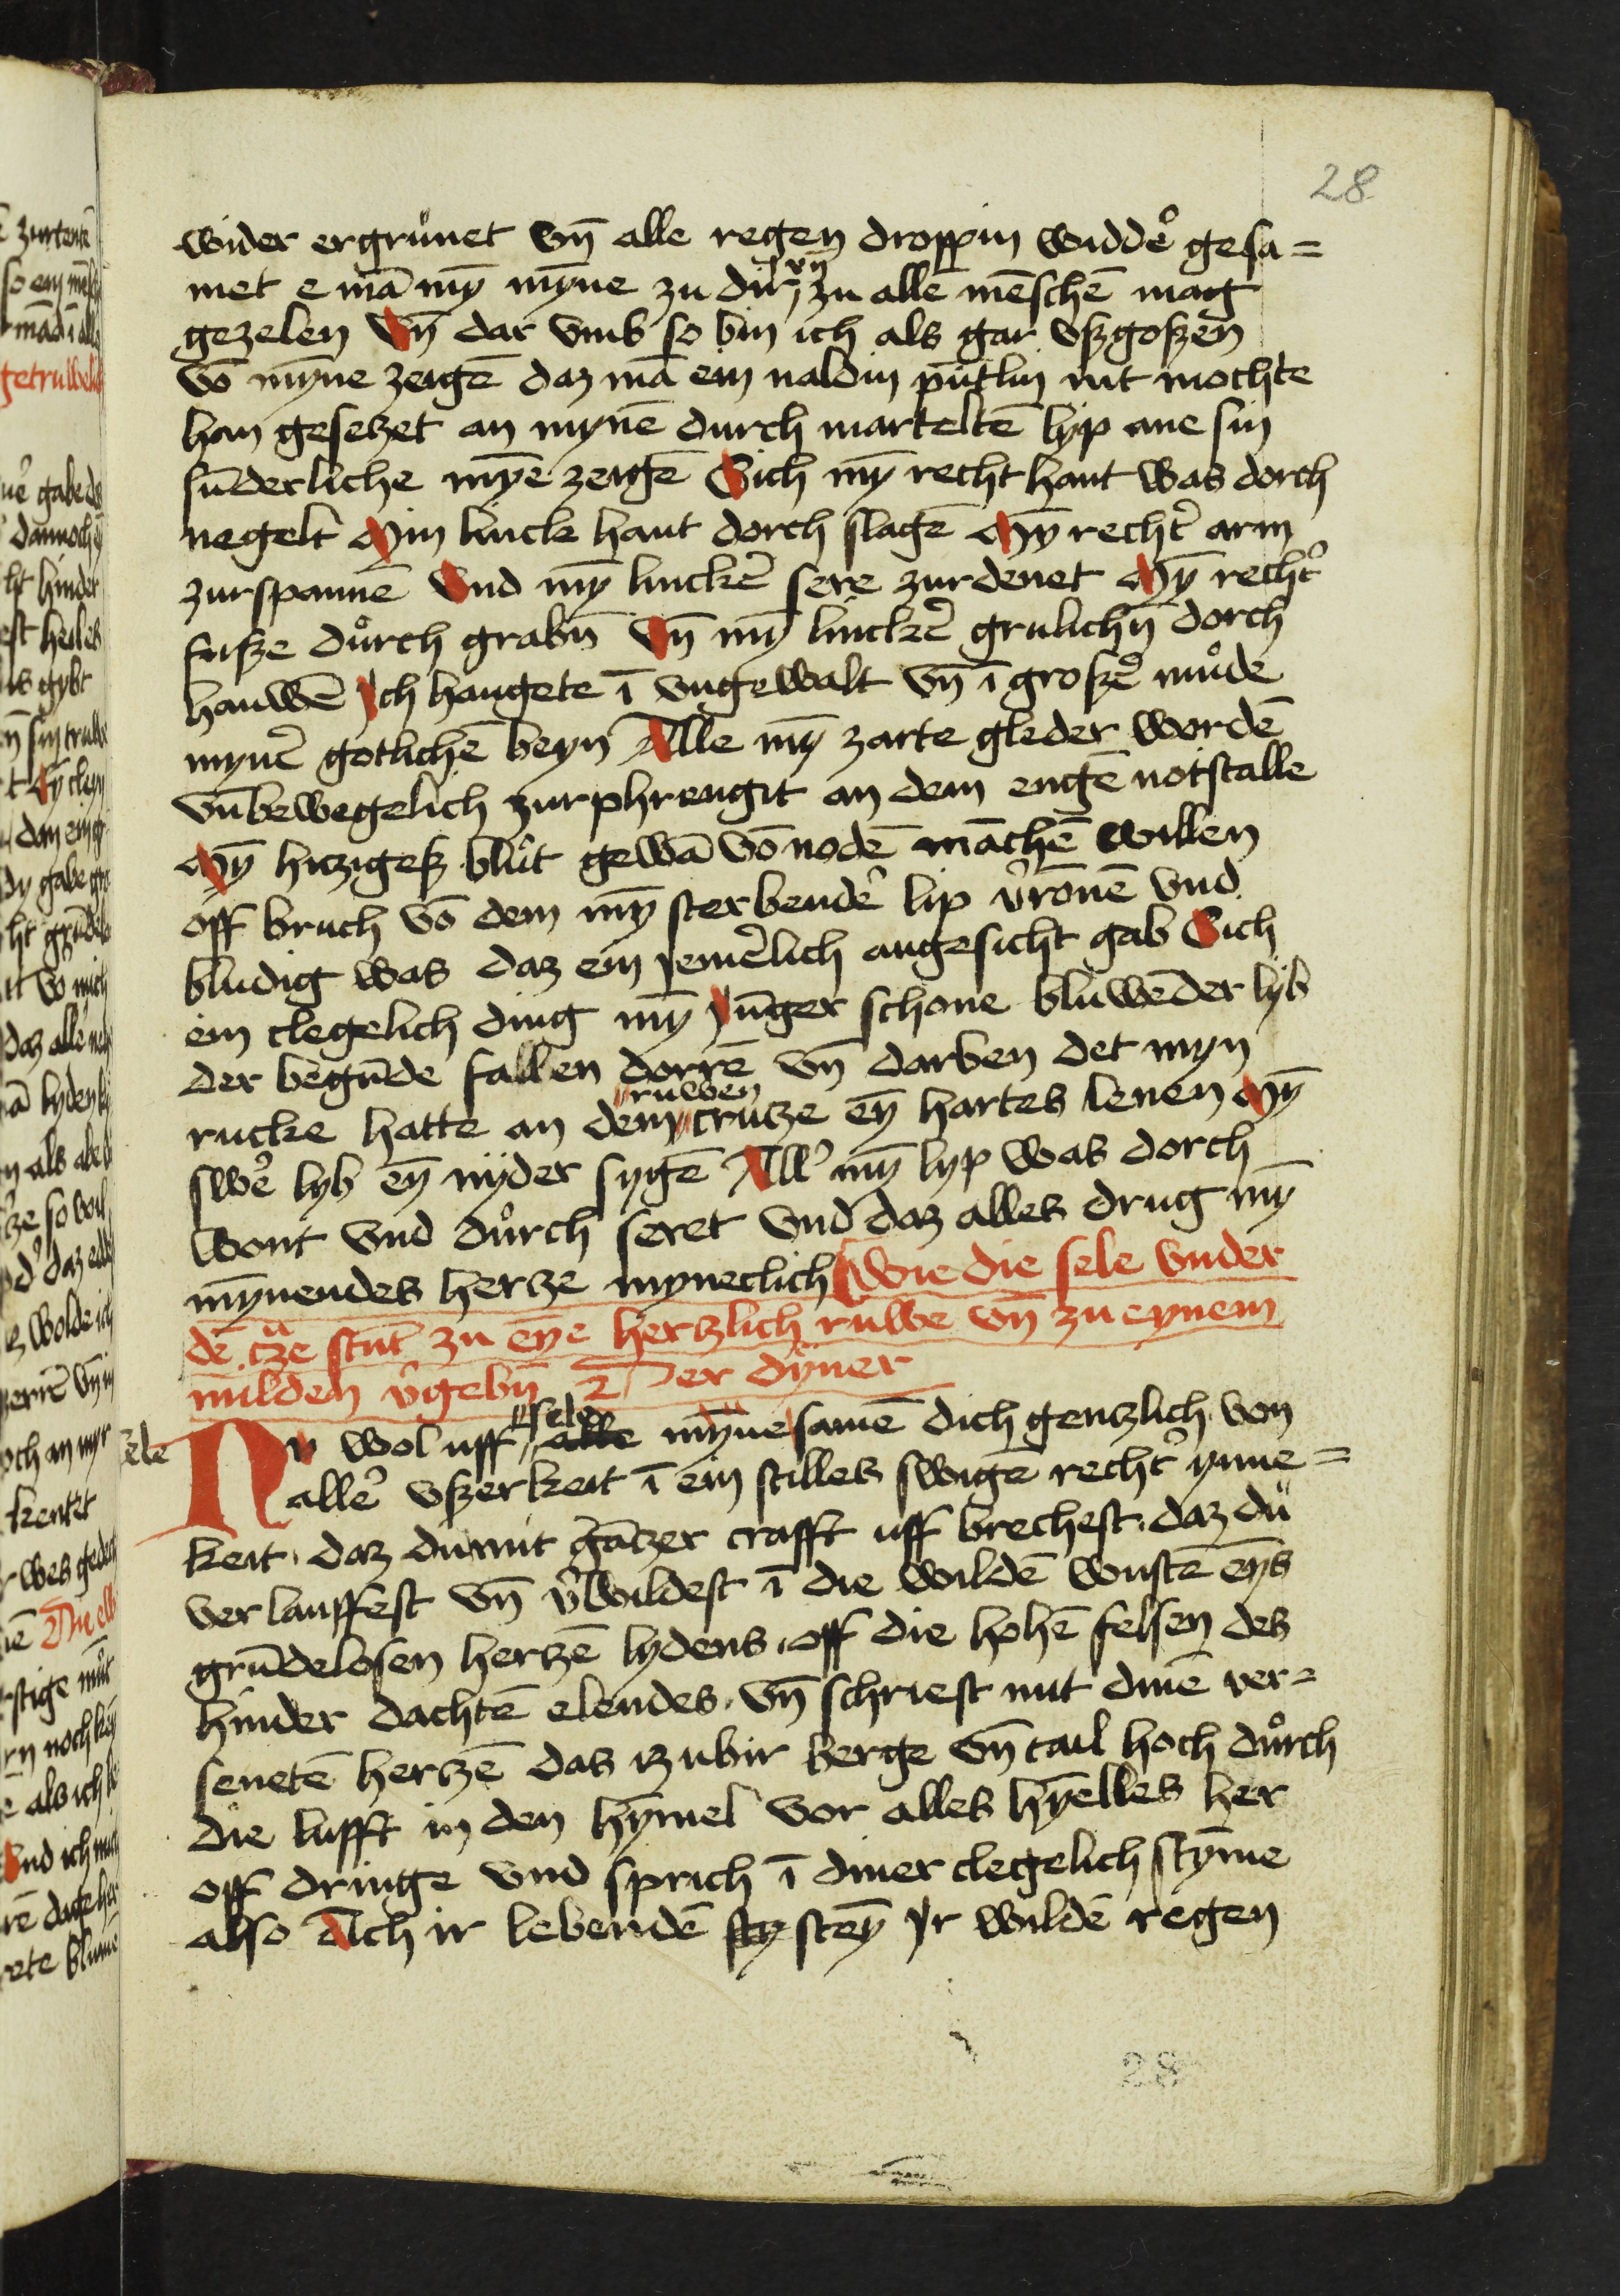 28
wider ergrůnet vn̄ alle regen droppin widde͛ gesa=
met e mā my̅ my̅ne zu dir vn̄ zu alle mēschē mag
gezelen Vn̄ dar vmb so bin ich als gar vßgoßen
vō my̅ne zeigē daz mā ein naldin pūtlin nit mochte
han gesetzet an mynē durch marteltē lyp ane sin
sūderliche my̅e zeigē Sich my̅ recht hant was dorch
negelt Min linck hant dorch slagē My̅ recht͛ arm
zurspannē Vnd my̅ linck͛ sere zurdenet My̅ recht͛
fusze důrch grabn̄ Vn̄ my̅ linck͛ grulichn̄ dorch
hauwē Ich hangete ī vngewalt vn̄ ī große͛ můde
myne͛ gotlichē beyn Alle my̅ zarte gleder wordē
vnbewegelich zurphrengit an dem engē notstalle
My̅ hiczigeß blůt gewā vō nodē māchē willen
off bruch vō dem my̅ sterbende͛ lip v͛ronē vnd
bludig was daz ein jemerlich angesicht gab Sich
ein clegelich ding my̅ Jūger schone bluwēder lyb
der begūde fallen dorrē vn̄ darben det myn
ruwen
rucke hatte an dem crutze ey̅ hartes lenen My̅
swe͛ lyb ey̅ nyder sygē All͛ my̅ lyp was dorch
wont vnd důrch seret vnd daz alles drug my̅
my̅nendes hertze myneclich Wie die sele vnder
dē cͣze stūt zu ey̅e hertzlich ruwe vn̄ zu eynem
milden v͛gebn̄ Der dyner
sele
Nv wol uff alle my̅ne samē dich gentzlich von
sele
alle͛ vßerkeit ī ein stilles swigē recht͛ ynne=
keit, daz du mit gātzer crafft uff brechest, daz du
verlauffest vn̄ v͛wildest ī die wildē wustē ey̅s
grūdelosen hertzē lydens, off die hohē felsen des
hinder dachtē elendes, vn̄ schriest mit dinē ver=
senetē hertzē das iz ubir berge vn̄ tail hoch důrch
die lufft in den hymel vor alles hy̅elles her
off dringe vnd sprich ī diner clegelich sty̅me
also Ach ir lebendē sty stey̅ Ir wildē regen
28